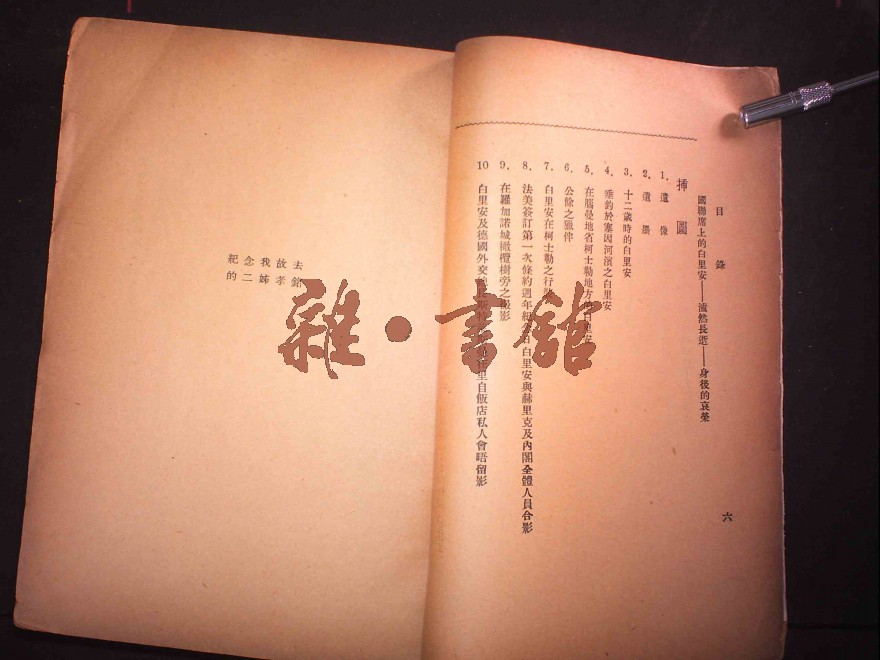 目錄
國聯席上的白里安——溘然長逝——身後的哀榮
六
插圖
1. 遺像
2. 遺墨
3. 十二歲時的白里安
4. 垂釣於塞因河濱之白里安
5. 在腦曼地省柯士勒地方的白里安
6. 公餘之獵伴
7. 白里安在柯士勒之行
8. 法美簽訂第一次條約週年紀念日白里安與赫里克及內閣全體人員合影
9. 在羅加諾城橄欖樹旁之攝影
10 白里安及德國外交里自飯店私人會晤留影
紀念我故去
的二姊孝銘
雜·書館